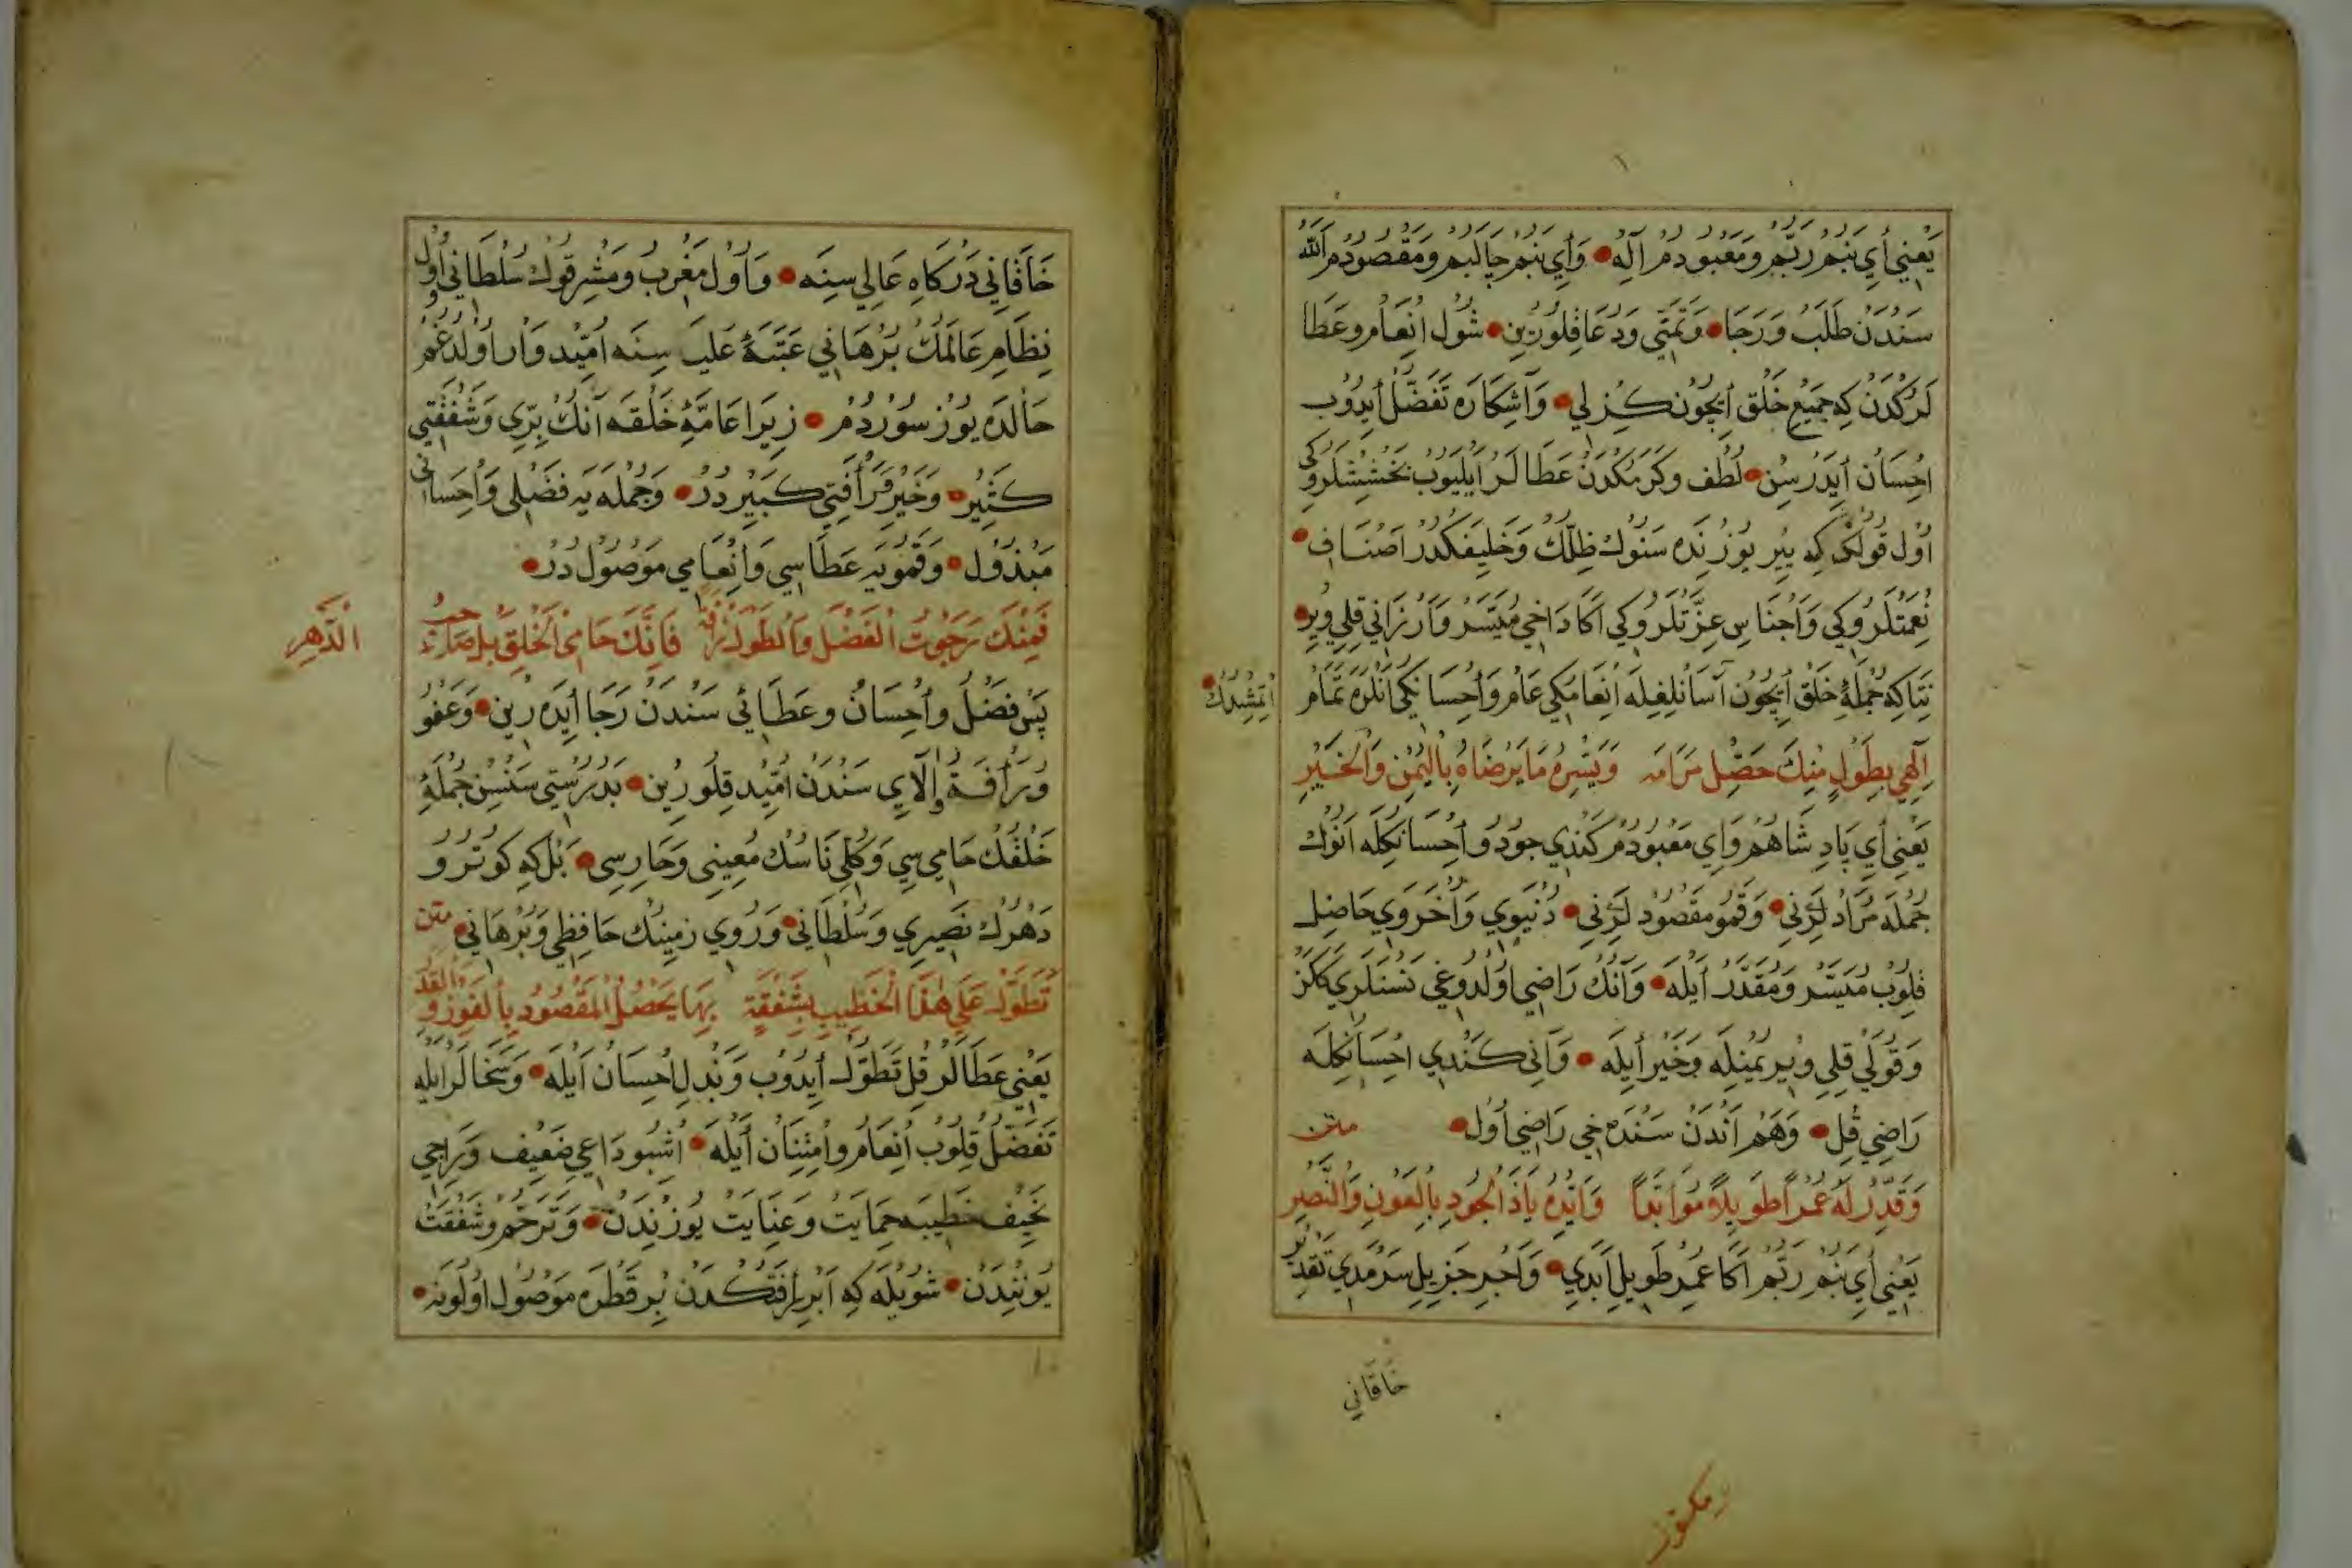 يَعْنِي أَيْ بَنُمْ رَبُّمْ وَمَعْبُودُمْ آلِهْ وَأَيْ بَنُمْ جَالِبُمْ وَمَقْصُودُمْ اَللّٰه
سَنْدَنْ طَلَبْ وَرَجَا وَتَمَنِّي وَدُعَا قِلُورِينْ شُولْ اِنْعَامْ وعَطَا
لَرُكْدَنْ كِه جَمِيعِ خَلْقْ اَيِچُونْ كِزلِي وَآشِكَارَه تَفَضُّلْ أَيدُوبْ
اِحْسَانْ أَيدَرْسِنْ لُطْف وكَرَمُكْدَنْ عَطَالَرْ اَيْلَيُوبْ بَخْشِشْلَرُوكِي
اُولْ قُولُكَه كِه يِيرْ يُوزِنْدَه سَنُوكْ ظِلُّكْ وَخَلِيفَكْدُرْ اَصْنَافِ
نِعْمَتْلَرُوكِي وَاَجْنَاسِ عِزَّتْلَرُوكِي اَكَا دَاخِي مُيَسَّرْ وَاَرْزَانِي قِلِي وِيرْ
نِتَاكِه جُمْلَهٔ خَلْقْ أَيِچُونْ آسَانْلِغِلَه اِنْعَامُكِي عَامْ وَاِحْسَانِكِي اَنْلَرَه تَمَامْ
اَتْمِشِدُكْ
اِلٰهِي بِطَوْلٍ مِنْكَ حَصِّلْ مَرَامَه وَيَسِّرْهُ مَا يَرْضَاهُ بِالْيُمْنِ وَالْخَيْرِ
يَعْنِي أَيْ پَادِشَاهُمْ وَاَيْ مَعْبُودُمْ كَنْدِي جُودُ وأِحْسَانِكِلَه اَنُوكْ
جُمْلَه مُرَادْلَرِنِي وَقَمُو مَقْصُودْلَرِنِي دُنْيَوِي وَاُخْرَوِي حَاصِل
قِلُوبْ مُيَسَّرْ وَمُقَدَّرْ أَيلَه وَآنُكْ رَاضِي اُولْدُوغِي نَسْنَلَرِي
وَقُولَي قِلِي وِيرْ يُمْنِلَه وَخَيْرْ أَيلَه وَآنِي كَنْدِي اِحْسَانِكِلَه
رَاضِي قِلْ وَهَمْ اَنْدَنْ سَنْدَه خِي رَاضِي اُولْ متن
وَقَدِّرْ لَهُ عُمْرًا طَوِيلًا مُوَابَدًا وَاَيِّدْهُ يَاذَا الْجُودِ بِالْعَوْنِ وَالنَّصْرِ
يَعْنِي أَيْ بَنُمْ رَبُّمْ اَكَا عُمْرِ طَوِيلِ اَبَدِي وَاَجْرِ جَزِيلِ سَرْمَدِي تَقْدِيرْ
خَاقَانِي
خَاقَانِي دَرْكَاهِ عَالِي سِنَه وَاُولْ مَغْرِبْ وَمَشْرِقُوكْ سُلْطَانِي اُولْ
نِظَامِ عَالَمُكْ بُرْهَانِي عَتَبَهٔ عَلِيَّه سِنَه اُمِّيدْوَارْ اُولْدُغُمْ
حَالْدَه يُوزْ سُورْدُمْ زِيرَا عَامَّهٔ خَلْقَه آنُكْ بِرِّي وَشَفَقَتِي
كَثِيرْ وَخَيْرُ وَرَأْفَتِي كَبِيرْدُرْ وَجُمْلَه يَه فَضْلِي وَاِحْسَانِي
مَبْذُولْ وَقَمُويَه عَطَاسِي وَاِنْعَامِي مَوْصُولْدُرْ
فَمِنْكَ رَجَوْتُ الْفَضْلَ وَالطَّوْلَ رَأْفَة فَإِنَّكَ حَامِي الْخَلْقِ بَلْ صَاحِبُ
الدَّهْرِ
پَسْ فَضْلُ وأِحْسَانْ وعَطَائِي سَنْدَنْ رَجَا أَيدَه رِينْ وَعَفْوُ
وَرَأْفَةْ وَاٰلَايِي سَنْدَنْ اُمِّيدْ قِلُورِينْ بَدُرُسْتِي سَنْسِنْ جُمْلَهٔ
خَلْقُكْ حَامِي سِي وَكُلِّي نَاسُكْ مُعِينِي وَحَارِسِي بَلْ كِه كُوتُرُو
دَهْرُكْ نَصِيرِي وَسُلْطَانِي وَرُويِ زَمِينُكْ حَافِظِي وَبُرْهَانِي متن
تَطَوَّلْ عَلَى هٰذَا الْخَطِيبِ بِشَفْقَةٍ بِهَا يَحْصُلُ الْمَقْصُودُ بِالْفَوْزِ وَالْقَدْ
يَعْنِي عَطَالَرْ قِلْ تَطَوُّلْ أَيدُوبْ وَبَذْلِ اِحْسَانْ اَيْلَه وَسَخَالَرْ اَيلَه
تَفَضُّلْ قِلُوبْ اِنْعَامْ وَاِمْتِنَانْ أَيلَه اُشْبُو دَاعِي ضَعِيفْ وَرَاجِي
نَحِيفْ خَطِيبَه حِمَايَتْ وَعِنَايَتْ يُوزِنْدَنْ وَتَرَحُّمْ وشَفْقَتْ
يُونِنْدَنْ شُويْلَه كِه اَبْرِ رَأْفَتُكْدَنْ بِرْ قَطْرَه مَوْصُولْ اُولُونَه